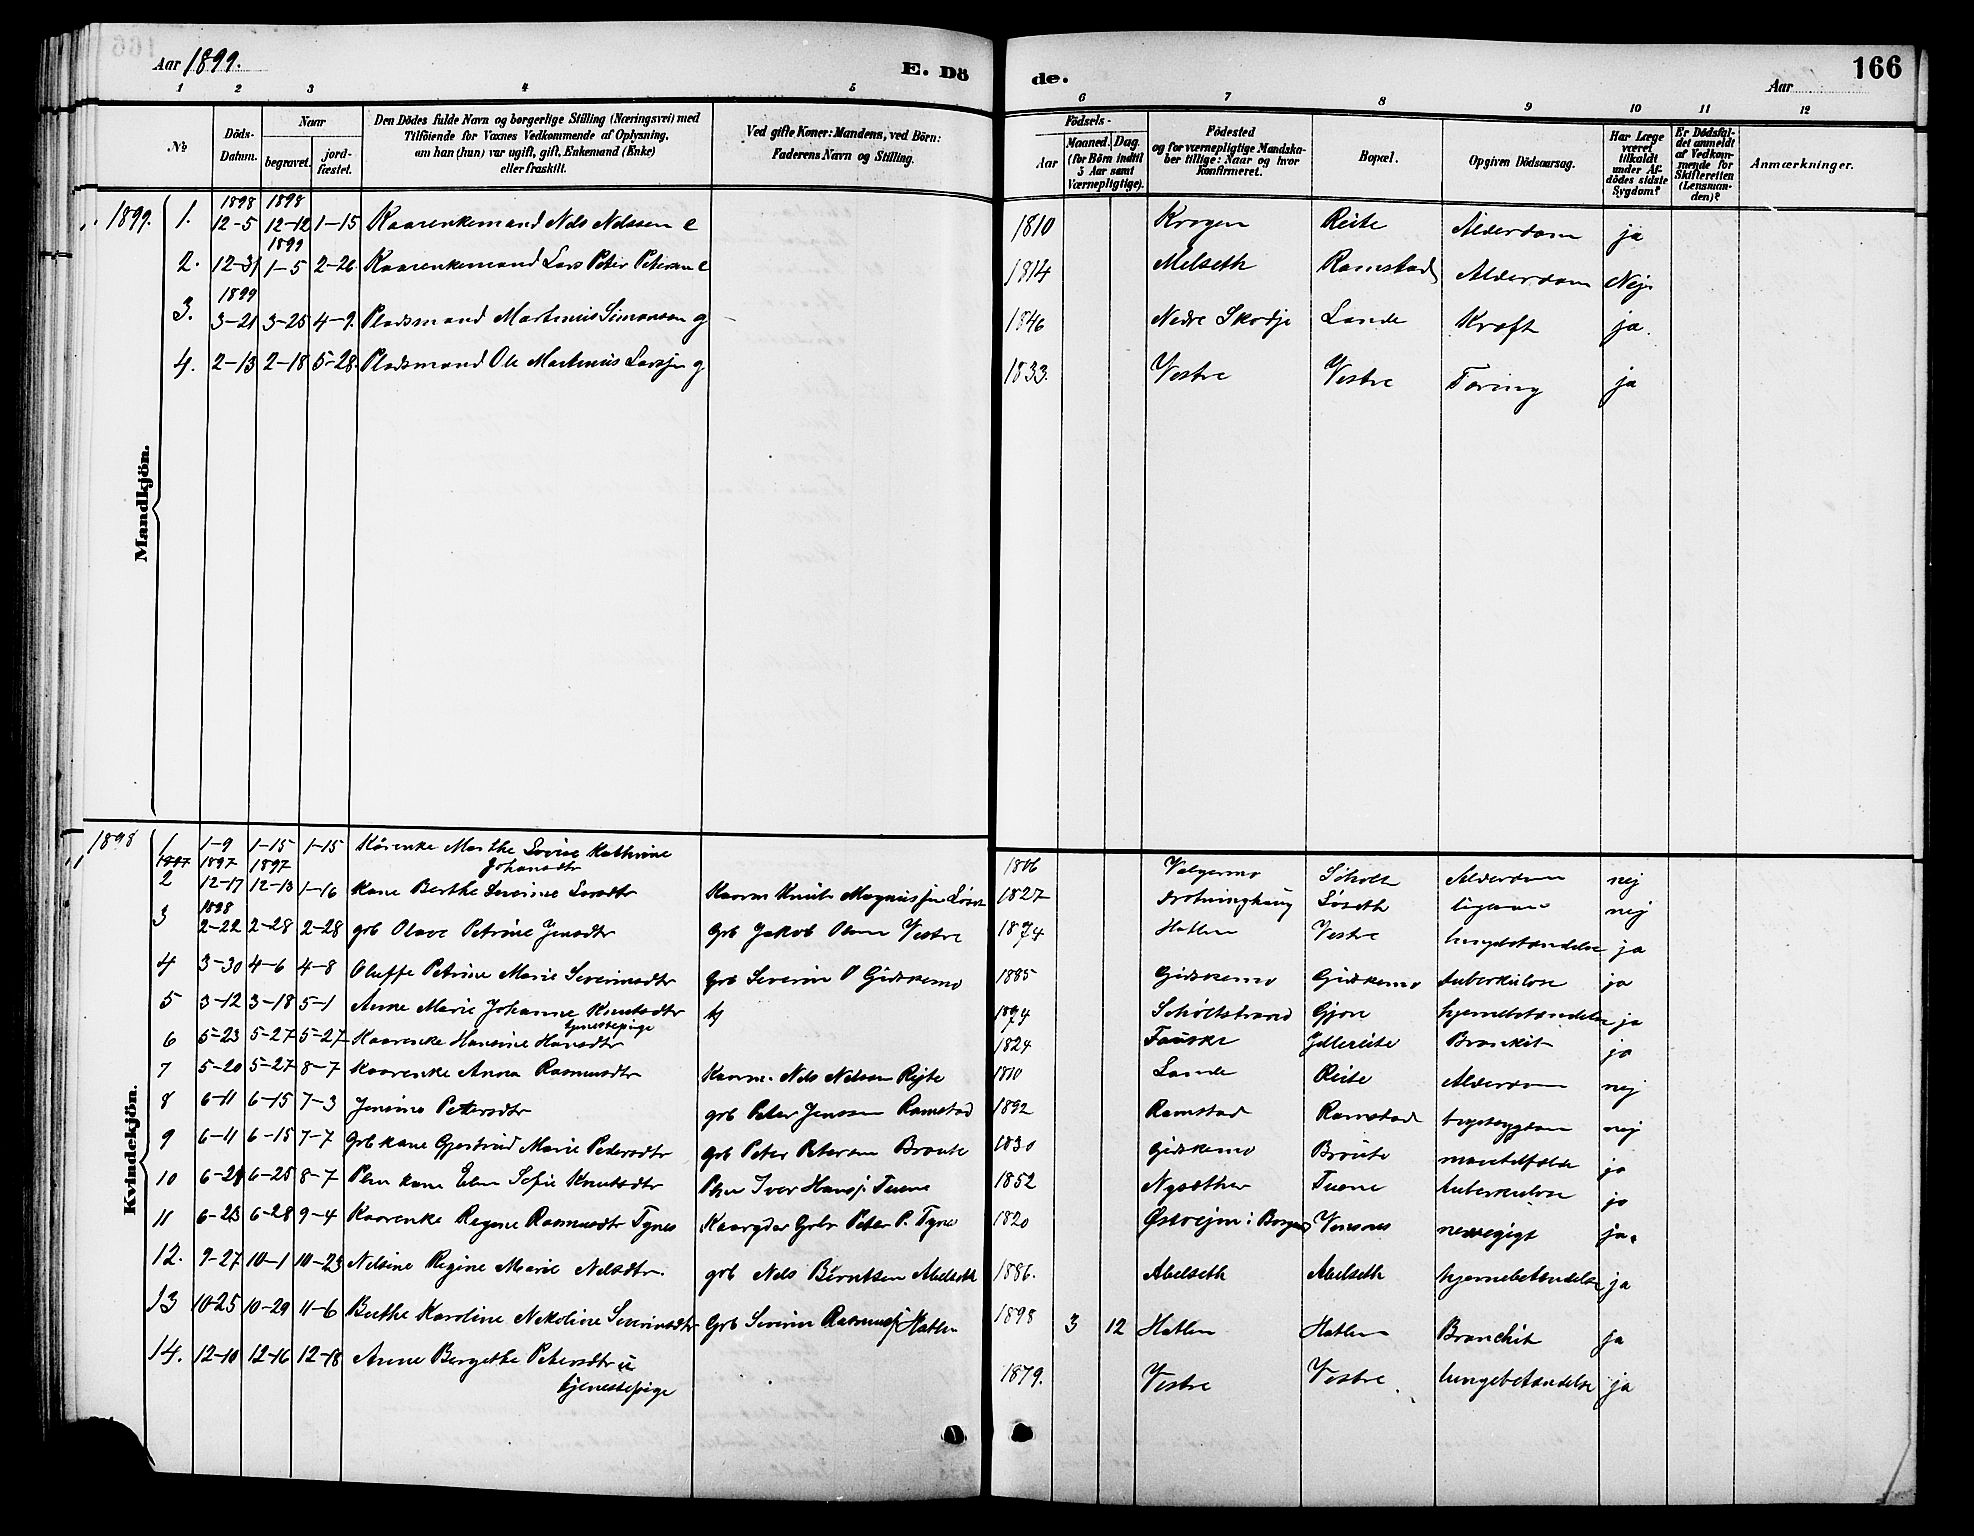 Aar 1899.
E. Dö
de.
Aar
166
1 2 3 4 5 6 7 8 9 10 11 12
No
Döds-Datum.
Naar
begravet.
jord-fæstet.
Den Dödes fulde Navn og borgerlige Stilling (Næringsvei) med
Tilföiende for Voxnes Vedkommende af Oplysning,
om han (hun) var ugift, gift, Enkemand (Enke)
eller fraskilt.
Ved gifte Koner: Mandens, ved Börn:
Faderens Navn og Stilling.
Födsels-
Aar
Maaned.
Dag
(for Börn indtil
5 Aar samt
Værnepligtige).
Födested
og for værnepligtige Mandska-
ber tillige: Naar og hvor
konfirmeret.
Bopæl.
Opgiven Dödsaarsag.
Har Læge
været
tilkaldt
under Af-
dödes sidste
Sygdom?
Er Dödsfal-
det anmeldt
af Vedkom-
mende for
Skifteretten
(Lensman-
den)?
Anmærkninger.
Mandkjön.
1899. 1. 1898 12-5 1898 12-12 1-15 Kaarenkemand Nils Nilssen e 1810 Krogen Reite Alderdom ja
2. 12-31 1899 1-5 2-26 Kaarenkemand Lars Peter Petersen e 1814 Melseth Ramstad Alderdom Nej
3. 1899 3-21 3-25 4-9. Pladsmand Martinus Simonsen g 1846 Nedre Skodje Lande Kræft ja.
4. 2-13 2-18 5-28. Pladsmand Ole Martinus Larsjn g 1833. Vestre Vestre Tæring ja
Kvindekjön.
1898 1 1-9 1-15 1-15 Kårenke Marthe Lovise Kathrine Johansdtr 1806 Valgermo Sjöholt Alderdom nej
1897 2 1897 12-17 1897 12-13 1-16 Kone Berthe Severine Larsdtr Kaarm Knut Magnusjn Løset 1827 Løseth nej
3 1898 2-22 2-28 2-28 grb Olave Petrine Jensdtr Grb Jakob Olsen Vestre 1874 Hatlen Vestre ja
4 3-30 4-6 4-8 Oluffe Petrine Marie Severinsdtr Grb Severin O Gidskemo 1885 Gidskemo Gidskemo tuberkulose ja
5 3-12 3-18 5-1 Anne Marie Johanne Knutsdtr tjenestepige 1874 Sjöholtstrand Gjøre hjernebetændelse ja
6 5-23 5-27 5-27 Kaarenke Hansine Hansdtr 1824 Fauske Bronkit ja
7 5-20 5-27 8-7 Kaarenke Anna Rasmusdtr Kaarm. Nils Nilssen Rejte 1810 Lande Reite Alderdom nej
8 6-11 6-15 7-3 Jensine Pettersdtr grb Peter Jenssen Ramstad 1892 Ramstad Ramstad brystsygdom nej
9 6-11 6-15 7-7 Grb kone Gjertrud Marie Pedersdtr grb Peter Petersen Brøute 1830 Gidskemo Brøute ja
10 6-21 6-25 8-7 Plm kone Elen Sofie Knutsdtr Plm Iver Hansj. Tuene 1852 Nysæther Tuene tuberkulose ja
11 6-23 6-28 9-4 Kaarenke Regine Rasmusdtr Tynes Kaargdar Grbr Peter P. Tynes 1820 Østrejm i Borgund ja.
12. 9-27 10-1 10-23 Nilsine Regine Marie Nilsdtr. grb Nils Berntsen Abelseth 1886. Abelseth Abelseth hjernebetændelse ja
13 10-25 10-29 11-6 Berthe Karoline Nikoline Severinsdtr Grb Severin Rasmusj Hatlen 1898 3 12 Hatlen Hatlen Bronchit ja
14. 12-10 12-16 12-18 Anne Bergethe Petersdtr u tjenestepige 1879. Vestre Vestre lungebetændelse ja